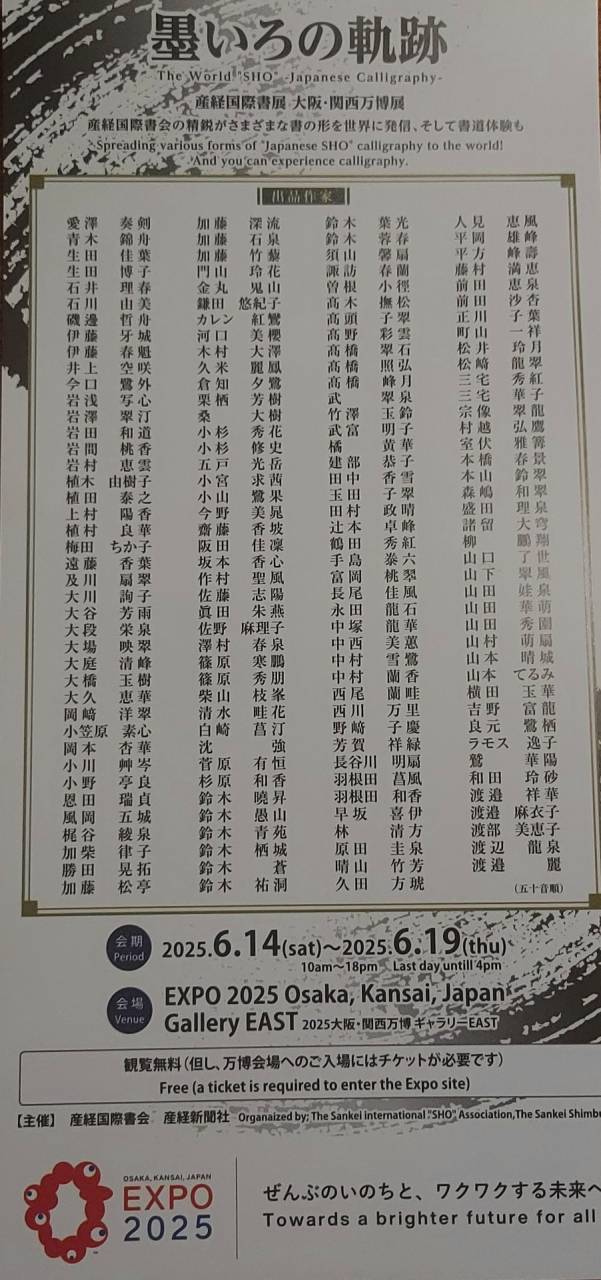 墨いろの軌跡
The World "SHO" -Japanese Calligraphy-
産経国際書展 大阪・関西万博展
産経国際書会の精鋭がさまざまな書の形を世界に発信、そして書道体験も
Spreading various forms of "Japanese SHO" calligraphy to the world!
And you can experience calligraphy.
出品作家
愛澤 奏剣
青木 錦舟
生田 佳葉
生田 博子
石井 理春
石川 由美
磯邊 哲舟
伊藤 牙城
伊藤 春魁
井上 空咲
今口 鷺外
岩浅 写心
岩澤 翠汀
岩田 和道
岩間 桃香
岩村 恵雲
植木 由樹子
植田 泰之
上村 陽香
植村 良華
梅田 ちか子
遠藤 香葉
及川 扇翠
大川 詢子
大谷 芳雨
大段 栄泉
大場 映翠
大庭 清峰
大橋 玉樹
大久 恵華
岡﨑 洋翠
小笠原 素心
岡本 杏華
小川 艸岑
小野 亭良
恩田 瑞貞
風岡 五城
梶谷 綾泉
加柴 律子
勝田 晃拓
加藤 松亭
加藤 深流
加藤 石泉
加藤 竹藜
門山 玲花
金丸 鬼山
鎌田 悠紀子
カレン 紅鸞
河口 美櫻
木村 大澤
久米 麗鳳
倉知 夕鷺
栗栖 芳樹
桑 大樹
小杉 秀花
小杉 修史
五戸 光岳
小宮 求茜
小山 鷺果
今野 美晃
齋藤 香坡
阪田 佳凜
坂本 香心
作村 聖風
佐藤 志陽
眞田 朱燕
佐野 麻理子
澤村 春泉
篠原 寒鵬
篠原 秀朋
柴山 枝峯
清水 畦花
白崎 菖汀
沈 強
菅原 有恒
杉原 和香
鈴木 曉昇
鈴木 愚山
鈴木 青苑
鈴木 栖城
鈴木 蒼
鈴木 祐洞
鈴木 葉光
鈴木 蓉春
須山 馨扇
諏訪 春蘭
曽根 小徑
髙木 撫松
髙頭 子翠
髙野 彩雲
髙橋 翠石
髙橋 照弘
髙橋 峰月
武 翠玉
竹澤 玉鈴
武富 明子
橘 黄華
建部 恭子
田中 香雪
玉田 子翠
田村 政晴
辻本 卓峰
鶴田 秀紅
手島 泰六
富岡 桃翠
長尾 佳風
永田 龍石
中塚 龍華
中西 美蕙
中村 雪鷺
中村 蘭香
西尾 蘭畦
西川 万里
野﨑 子慶
芳賀 祥緑
長谷川 明扇
羽根田 菖風
羽根田 和香
早坂 喜伊
林 清方
原田 圭泉
晴山 竹芳
久田 方琥
人見 恵風
平岡 雄峰
平方 峰壽
藤村 満恵
前田 恵泉
前田 沙杏
正川 子葉
町山 一祥
松井 玲月
松﨑 龍翠
三宅 秀紅
三宅 翠子
宗像 翠龍
村越 弘鷹
室伏 雅篝
本橋 春景
本山 鈴翠
森嶋 和翠
盛田 理泉
諸留 大穹
柳 鵬翔
山口 了世
山下 翠風
山田 娃泉
山田 華萌
山田 秀園
山村 萌扇
山本 晴城
山本 てるみ
横田 玉華
吉野 富龍
良元 鷺栖
ラモス 逸子
鷲 華陽
和田 玲砂
渡邉 祥華
渡邉 麻衣子
渡部 美恵子
渡辺 龍泉
渡邉 麗
(五十音順)
会期 Period
2025.6.14(sat)～2025.6.19(thu)
10am～18pm Last day untill 4pm
会場 Venue
EXPO 2025 Osaka, Kansai, Japan
Gallery EAST 2025大阪・関西万博 ギャラリーEAST
観覧無料(但し、万博会場へのご入場にはチケットが必要です)
Free (a ticket is required to enter the Expo site)
【主催】 産経国際書会 産経新聞社 Organaized by; The Sankei international "SHO" Association, The Sankei Shimbu
OSAKA, KANSAI, JAPAN
EXPO
2025
ぜんぶのいのちと、ワクワクする未来へ
Towards a brighter future for all